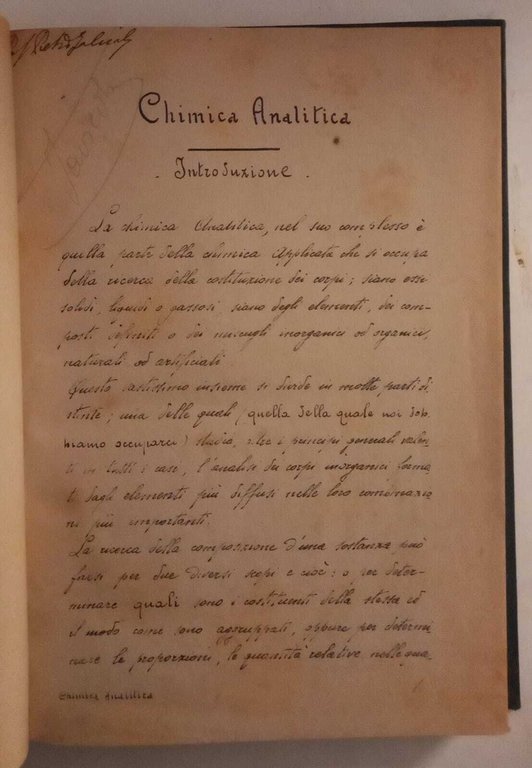 Chimica Analitica
Introduzione.
La chimica Analitica, nel suo complesso è
quella parte della chimica Applicata che si occupa
della ricerca della costituzione dei corpi; siano essi
solidi, liquidi o gassosi siano degli elementi, dei com-
posti definiti o dei miscugli inorganici od organici,
naturali od artificiali.
Questo vastissimo insieme si divide in molte parti di-
stinte; una delle quali (quella della quale noi dob-
biamo occuparci) studia, oltre i principi generali valen-
ti in tutti i casi, l'analisi dei corpi inorganici forma
ti dagli elementi più diffusi nelle loro combinazio
ni più importanti.
La ricerca della composizione d'una sostanza può
farsi per due diversi scopi e cioè: o per deter-
minare quali sono i costituenti della stessa ed
il modo come sono aggruppati, oppure per determi
nare le proporzioni, le quantità relative nelle qua.
Chimica Analitica